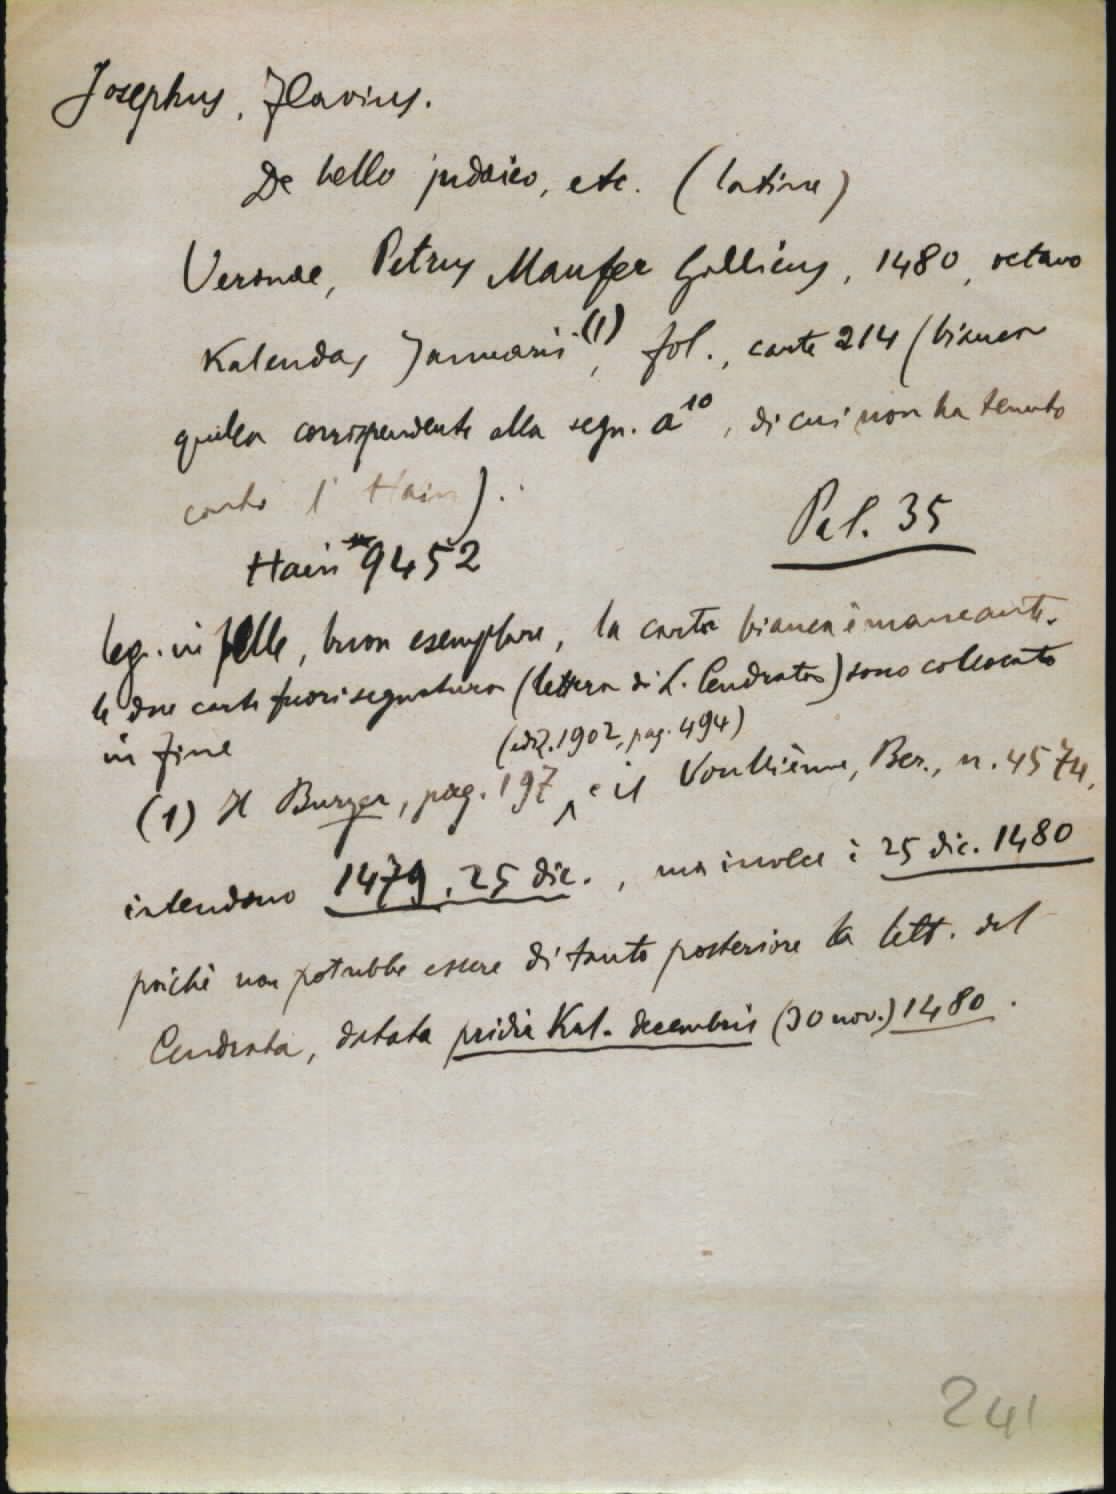 Josephus, Flavius.
De bello judaico, etc. (latine)
Veronae, Petrus Maufer Gallicus, 1480, octavo
Kalendas Januarii (1), fol., carte 214 (bianca
quella corrispondente alla segn. a10, di cui non ha tenuto
conto l'Hain).
Pal. 35
Hain *9452
leg. in pelle, buon esemplare, la carta bianca è mancante.
le due carte fuori segnatura (lettera di L. Cendrata) sono collocate
in fine
(ediz. 1902, pag. 494)
(1) Il Burger, pag. 197 e il Voullième, Ber., n. 4574,
intendono 1479, 25 dic., ma invece è 25 dic. 1480
poichè non potrebbe essere di tanto posteriore la lett. del
Cendrata, datata pridie Kal. decembris (30 nov.) 1480.
241